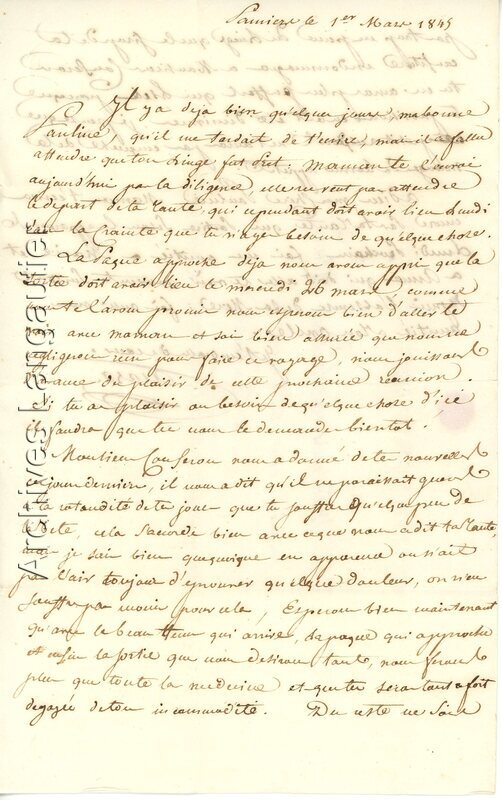 Pamiers le 1er Mars 1845
Il y a deja bien quelque jours, ma bonne
Pauline, qu'il me tardait de t'ecrire, mais il a fallu
attendre que ton linge fut pret. Maman te l'envoi
aujourd'hui par la diligence, elle ne veut pas attendre
le depart de ta tante, qui cependant doit avoir lieu Lundi
dans la crainte que tu n'ayes besoin de quelque chose.
La Paque approche deja nous avons appri que la
sortie doit avoir lieu le mercredi 26 mars comme
nous te l'avons promis nous esperons bien d'aller te
voir avec maman et soi bien assurée que nous ne
negligerons rien pour faire ce voyage, nous jouissons
d'avance du plaisir de cette prochaine reunion.
Si tu as plaisir ou besoin de quelque chose d'ici
il faudra que tu nous le demande bientot.
Monsieur Conferon nous a donné de tes nouvelles
ce jour dernier, il nous a dit qu'il ne paraissait guere
a la rotondité de tes joues que tu souffre quelque peu de
la tete, cela s'accorde bien avec ce que nous a dit ta tante,
mais je sais bien que quoique en apparence on n'ait
pas l'air toujours d'eprouver quelque douleur, on n'en
souffre pas moins pour cela, Esperons bien maintenant
qu'avec le beau tems qui arrive, la paque qui approche
et enfin la sortie que nous desirons tant, nous ferons
plus que toute la medecine et que tu seras tout a fait
degagée de ton incommodité. Du reste ne sois
Archives Langautier